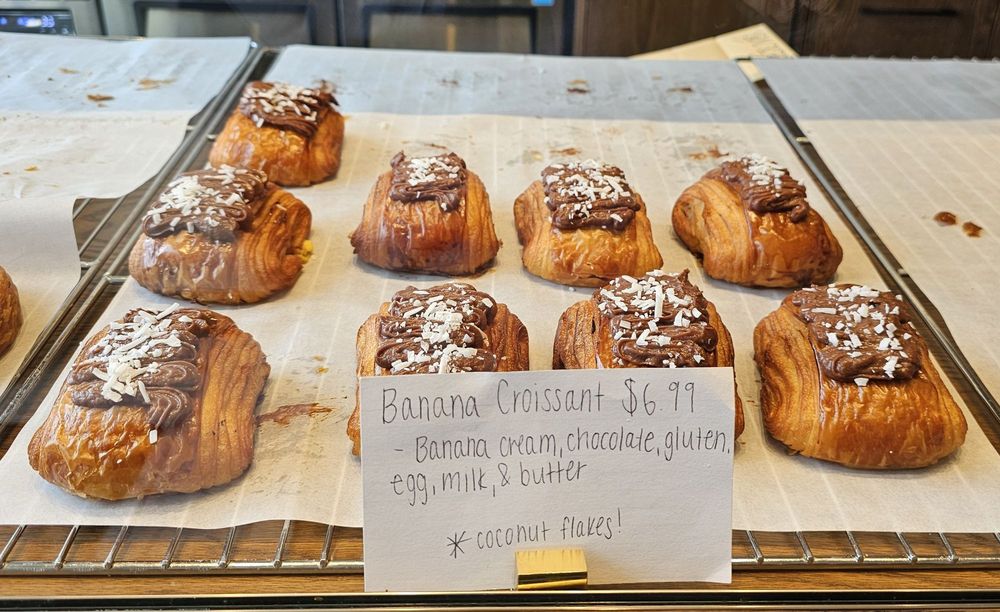 Banana Croissant $6.99
- Banana cream, chocolate, gluten,
egg, milk, & butter
* coconut flakes!